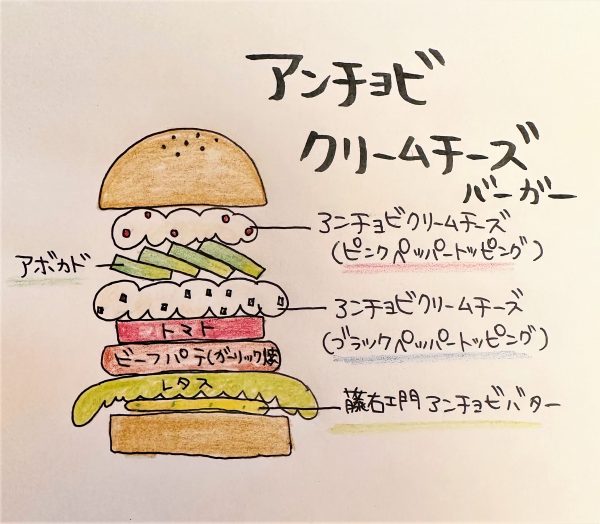 アンチョビ
クリームチーズ
バーガー
アンチョビクリームチーズ
(ピンクペッパートッピング)
アボカド
アンチョビクリームチーズ
(ブラックペッパートッピング)
トマト
ビーフパテ(ガーリック味)
レタス
藤右ェ門アンチョビバター